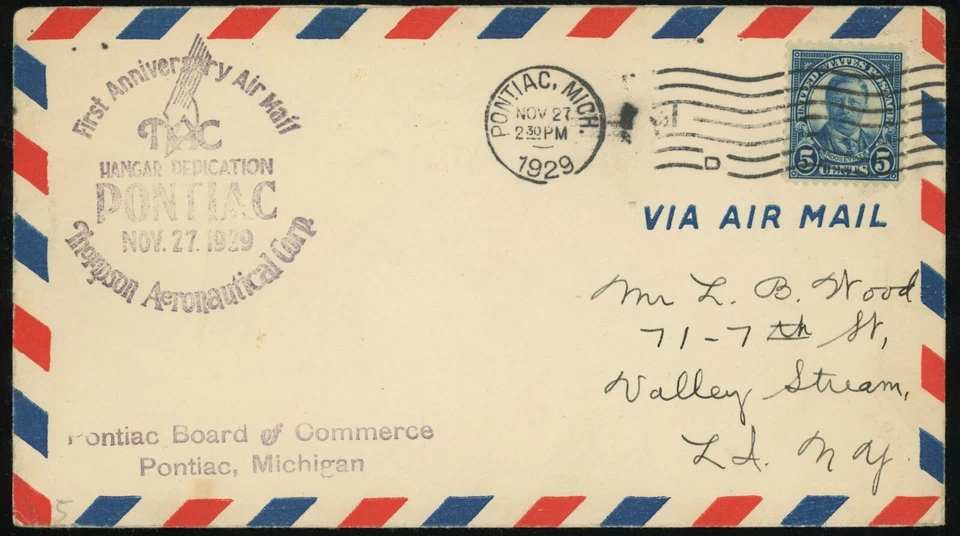 First Anniversary Air Mail
TAC
HANGAR DEDICATION
PONTIAC
NOV. 27. 1929
Thompson Aeronautical Corp.
PONTIAC, MICH.
NOV 27
2 30 PM
1929
D
UNITED STATES POSTAGE
ROOSEVELT
5 CENTS 5
VIA AIR MAIL
Mr L. B. Wood
71-7th St,
Valley Stream,
L I. N Y.
Pontiac Board of Commerce
Pontiac, Michigan
5